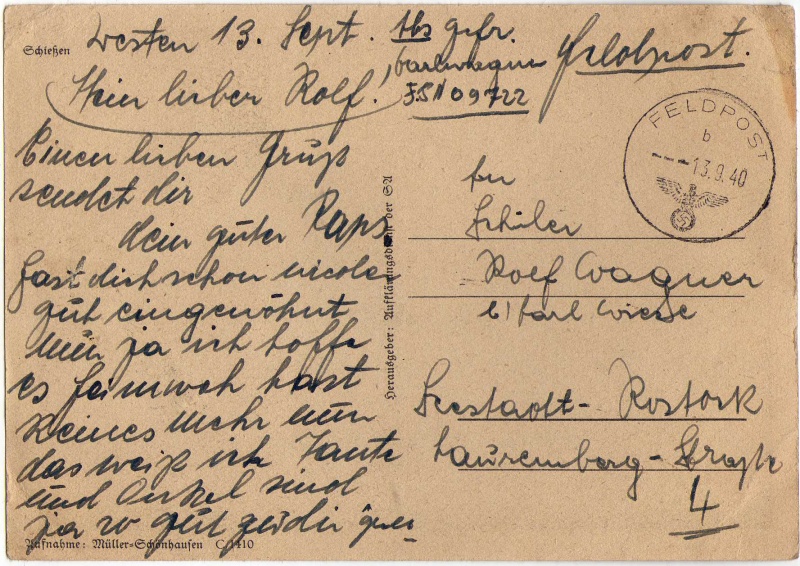 Schießen
Westen 13. Sept.
Abs gefr.
Karl Wagner
F.S.N 09722
Feldpost.
Mein lieber Rolf!
Einen lieben Gruß
sendet dir
dein guter Paps.
Hast dich schon wieder
gut eingewöhnt
nun ja ich hoffe
es Heimweh hast
keines mehr nun
das weiß ich Tante
und Onkel sind
ja so gut zu dir
Aufnahme: Müller-Schönhausen C/1410
Herausgeber: Aufklärungsdienst der SA
FELDPOST
b
---13.9.40
An
Schüler
Rolf Wagner
b/ Karl Wiese
Seestadt-Rostock
Lauremberg-Straße
4